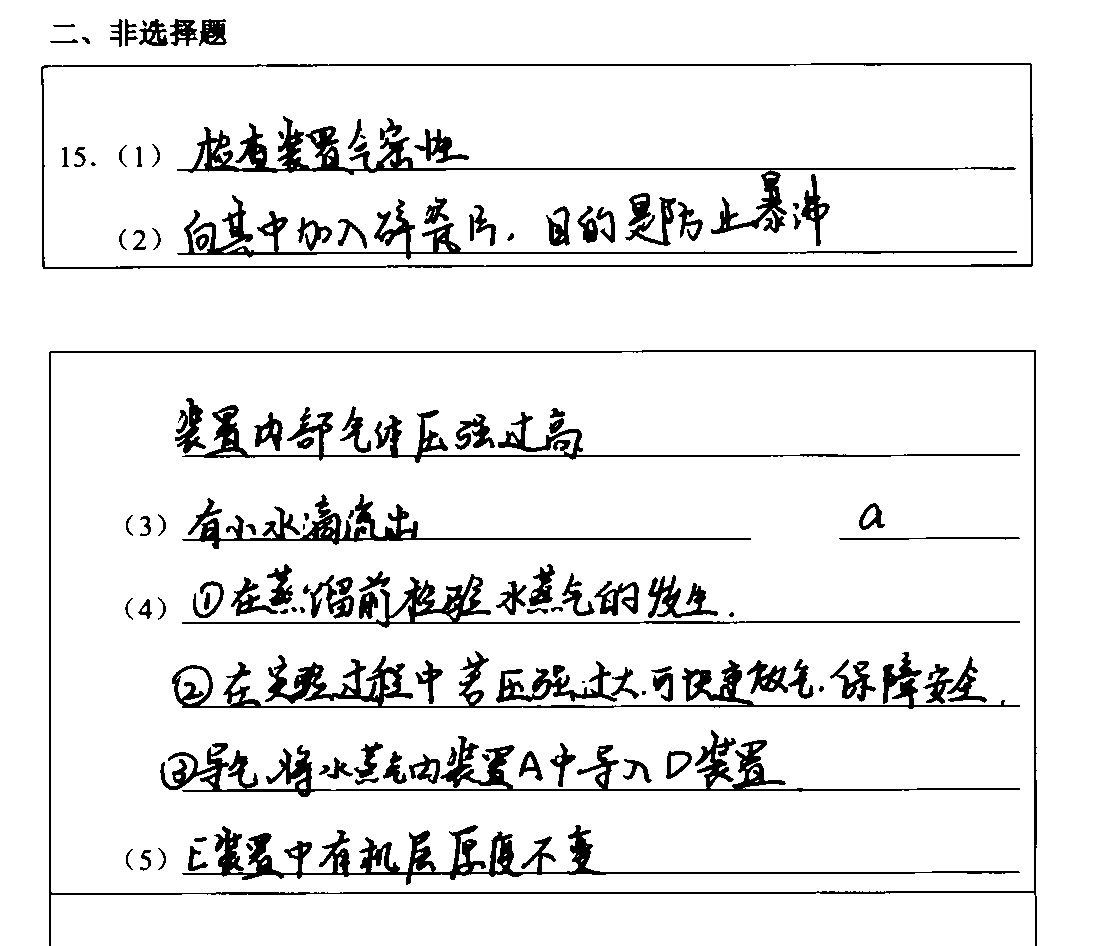 二、非选择题
15.（1）检查装置气密性
（2）向其中加入碎瓷片，目的是防止暴沸
装置内部气体压强过高
（3）有小水滴流出 a
（4）①在蒸馏前检验水蒸气的发生.
②在实验过程中若压强过大,可快速放气.保障安全.
③导气,将水蒸气内装置A中导入D装置
（5）E装置中有机层厚度不变